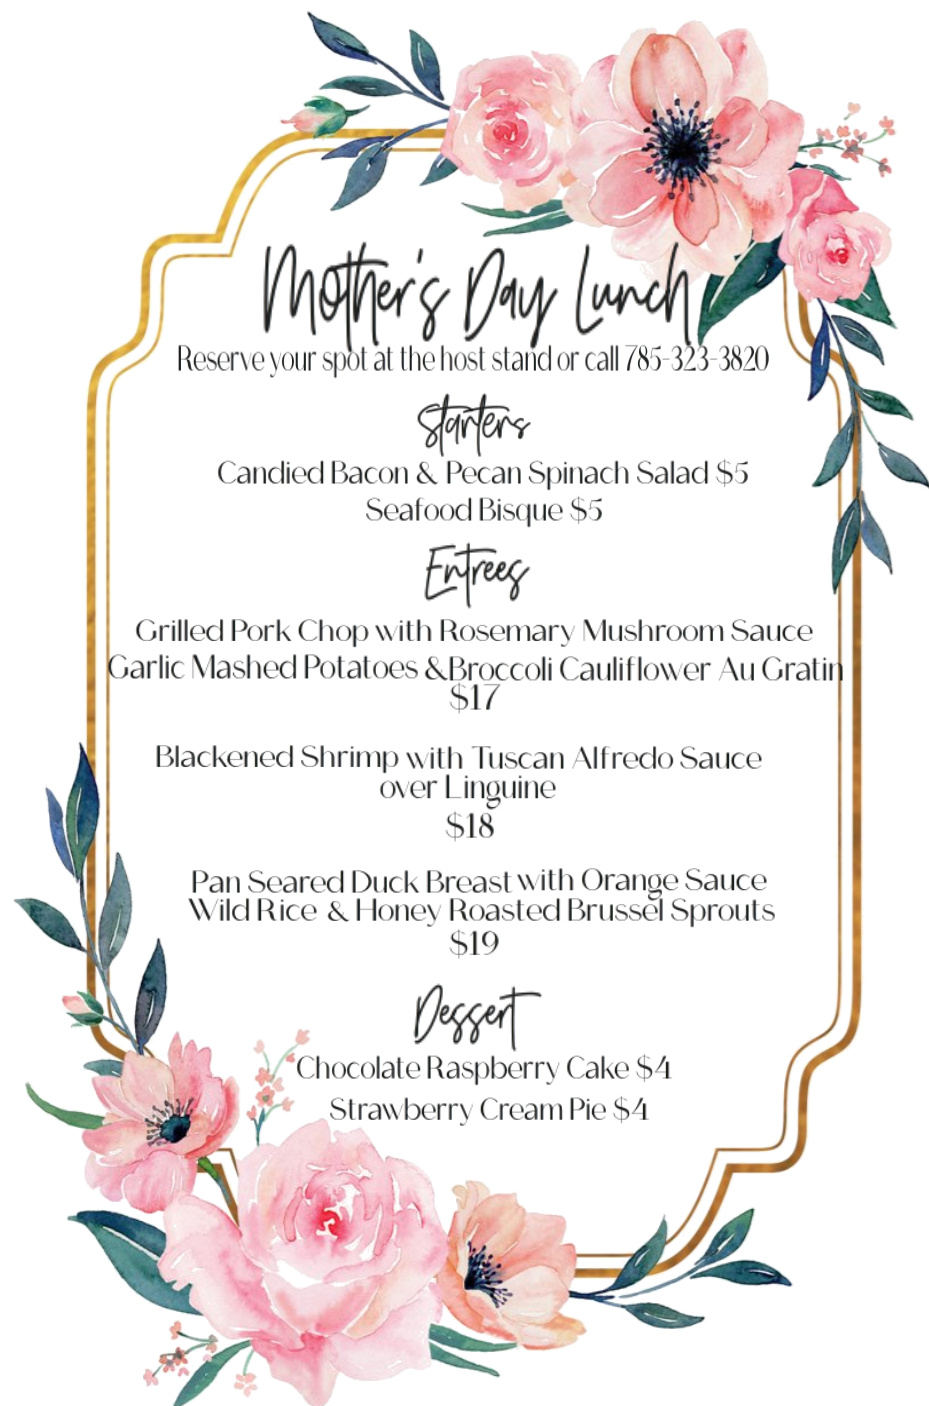 Mother's Day Lunch
Reserve your spot at the host stand or call 785-323-3820
Starters
Candied Bacon & Pecan Spinach Salad $5
Seafood Bisque $5
Entrees
Grilled Pork Chop with Rosemary Mushroom Sauce
Garlic Mashed Potatoes & Broccoli Cauliflower Au Gratin
$17
Blackened Shrimp with Tuscan Alfredo Sauce
over Linguine
$18
Pan Seared Duck Breast with Orange Sauce
Wild Rice & Honey Roasted Brussel Sprouts
$19
Dessert
Chocolate Raspberry Cake $4
Strawberry Cream Pie $4